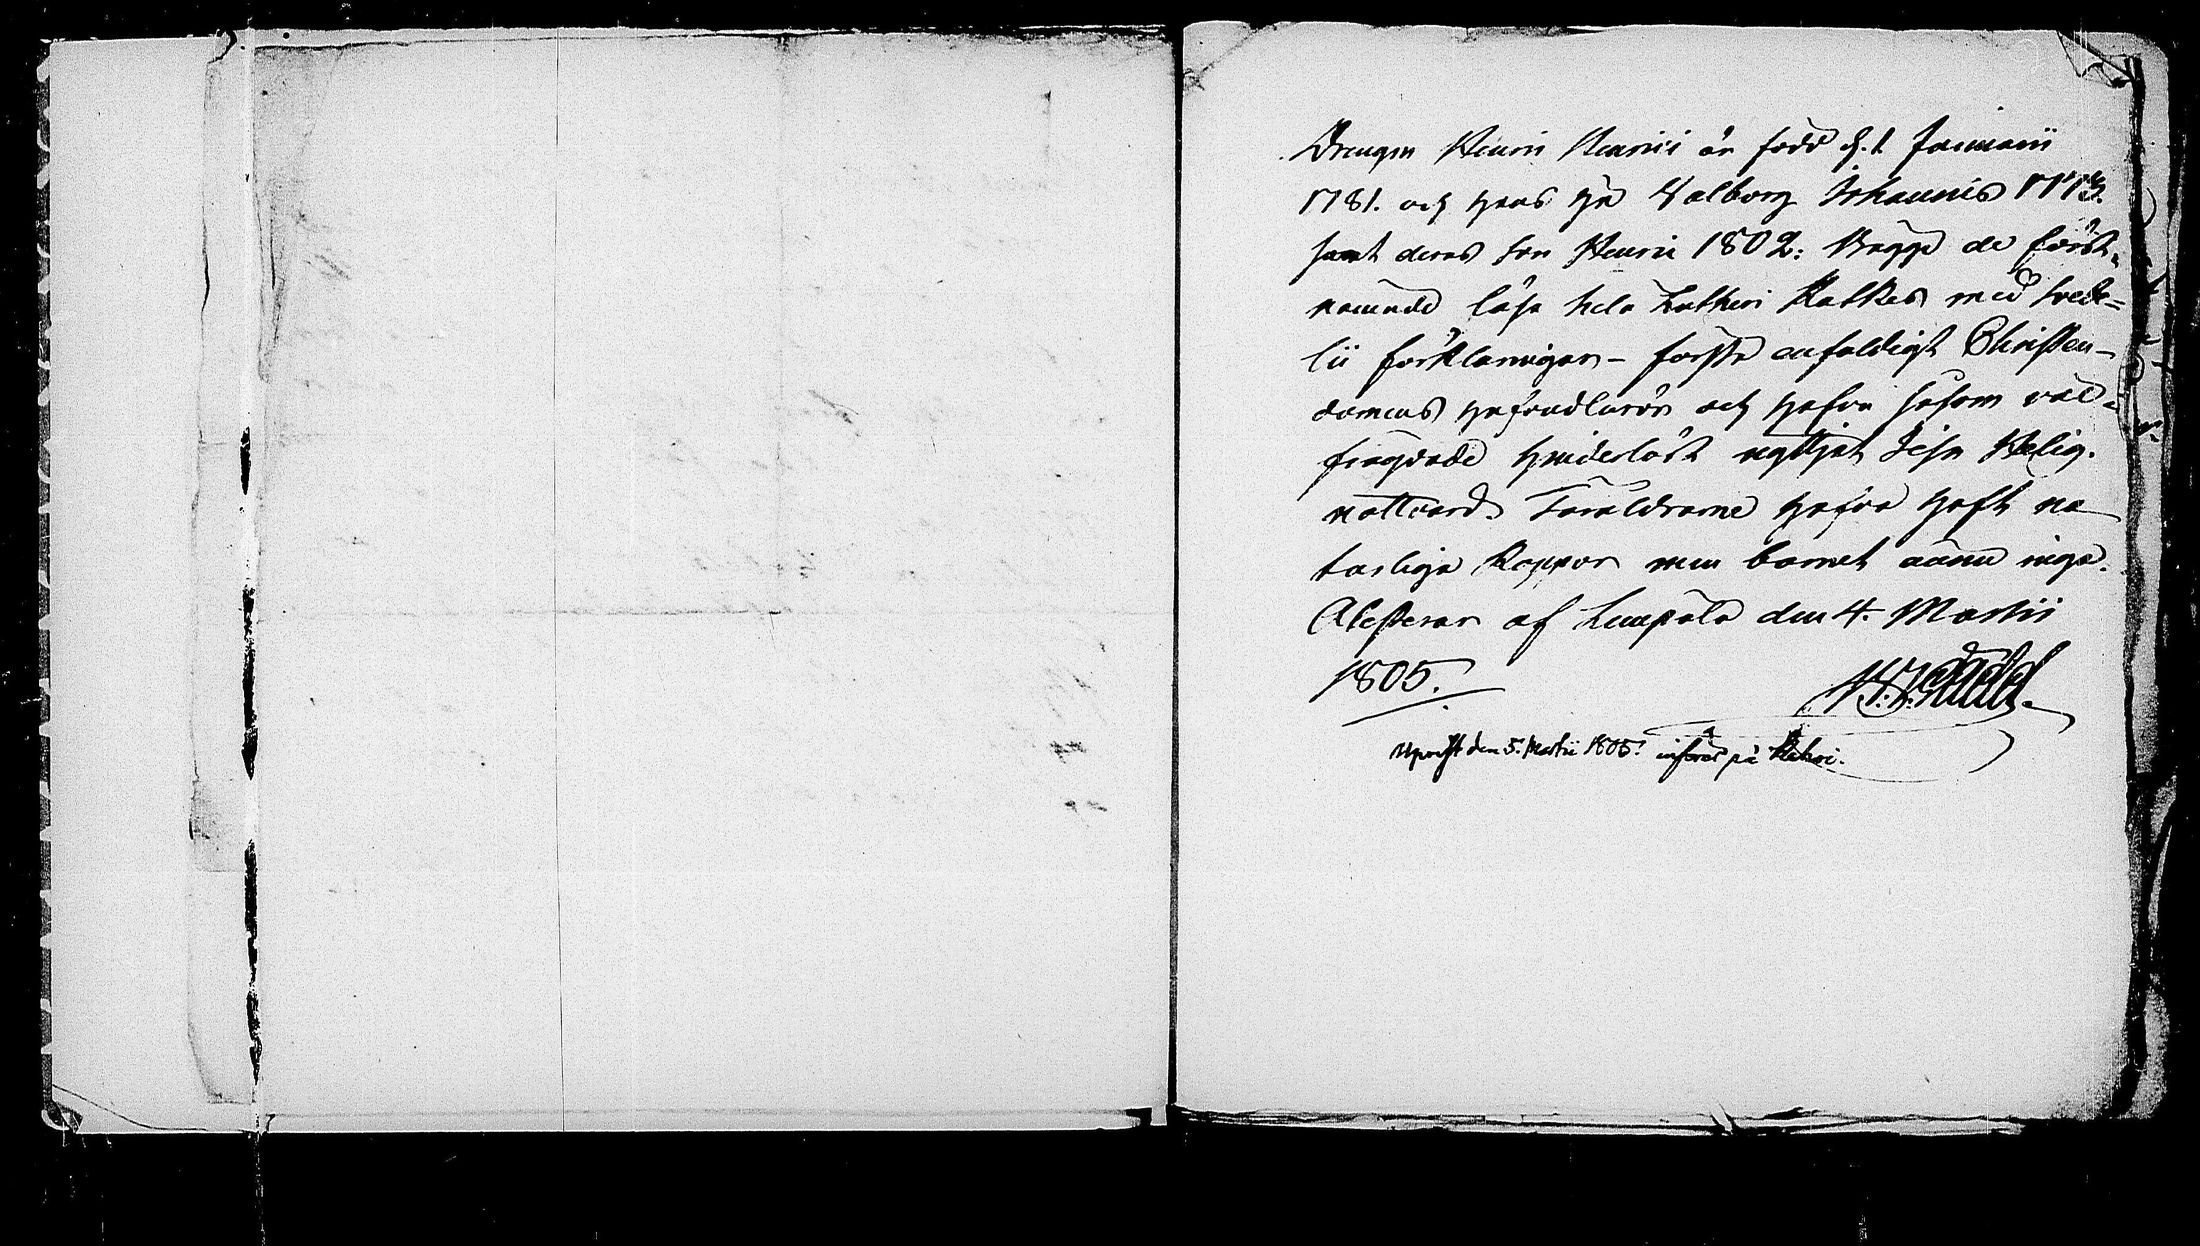 Drengen Henric Henrici är född d. 1. Januarii
1781. och hans hu Walborg Johannis 1773.
samt deras son Henric 1802: Bägge de först-
nämnde läsa hela Lutheri Katkes med Svebe-
lii förklaringar – förstå enfaldigt Christen-
domens hufvudläror och hafva såsom väl-
frägdade hinderlöst nyttjat Jesu Helig.
nattvard. Föräldrarne hafva haft na
turliga Koppor men barnet ännu inga.
Attesterar af Lempälä den 4. Martii
1805.
Upvist den 5. Martii 1805. införes på